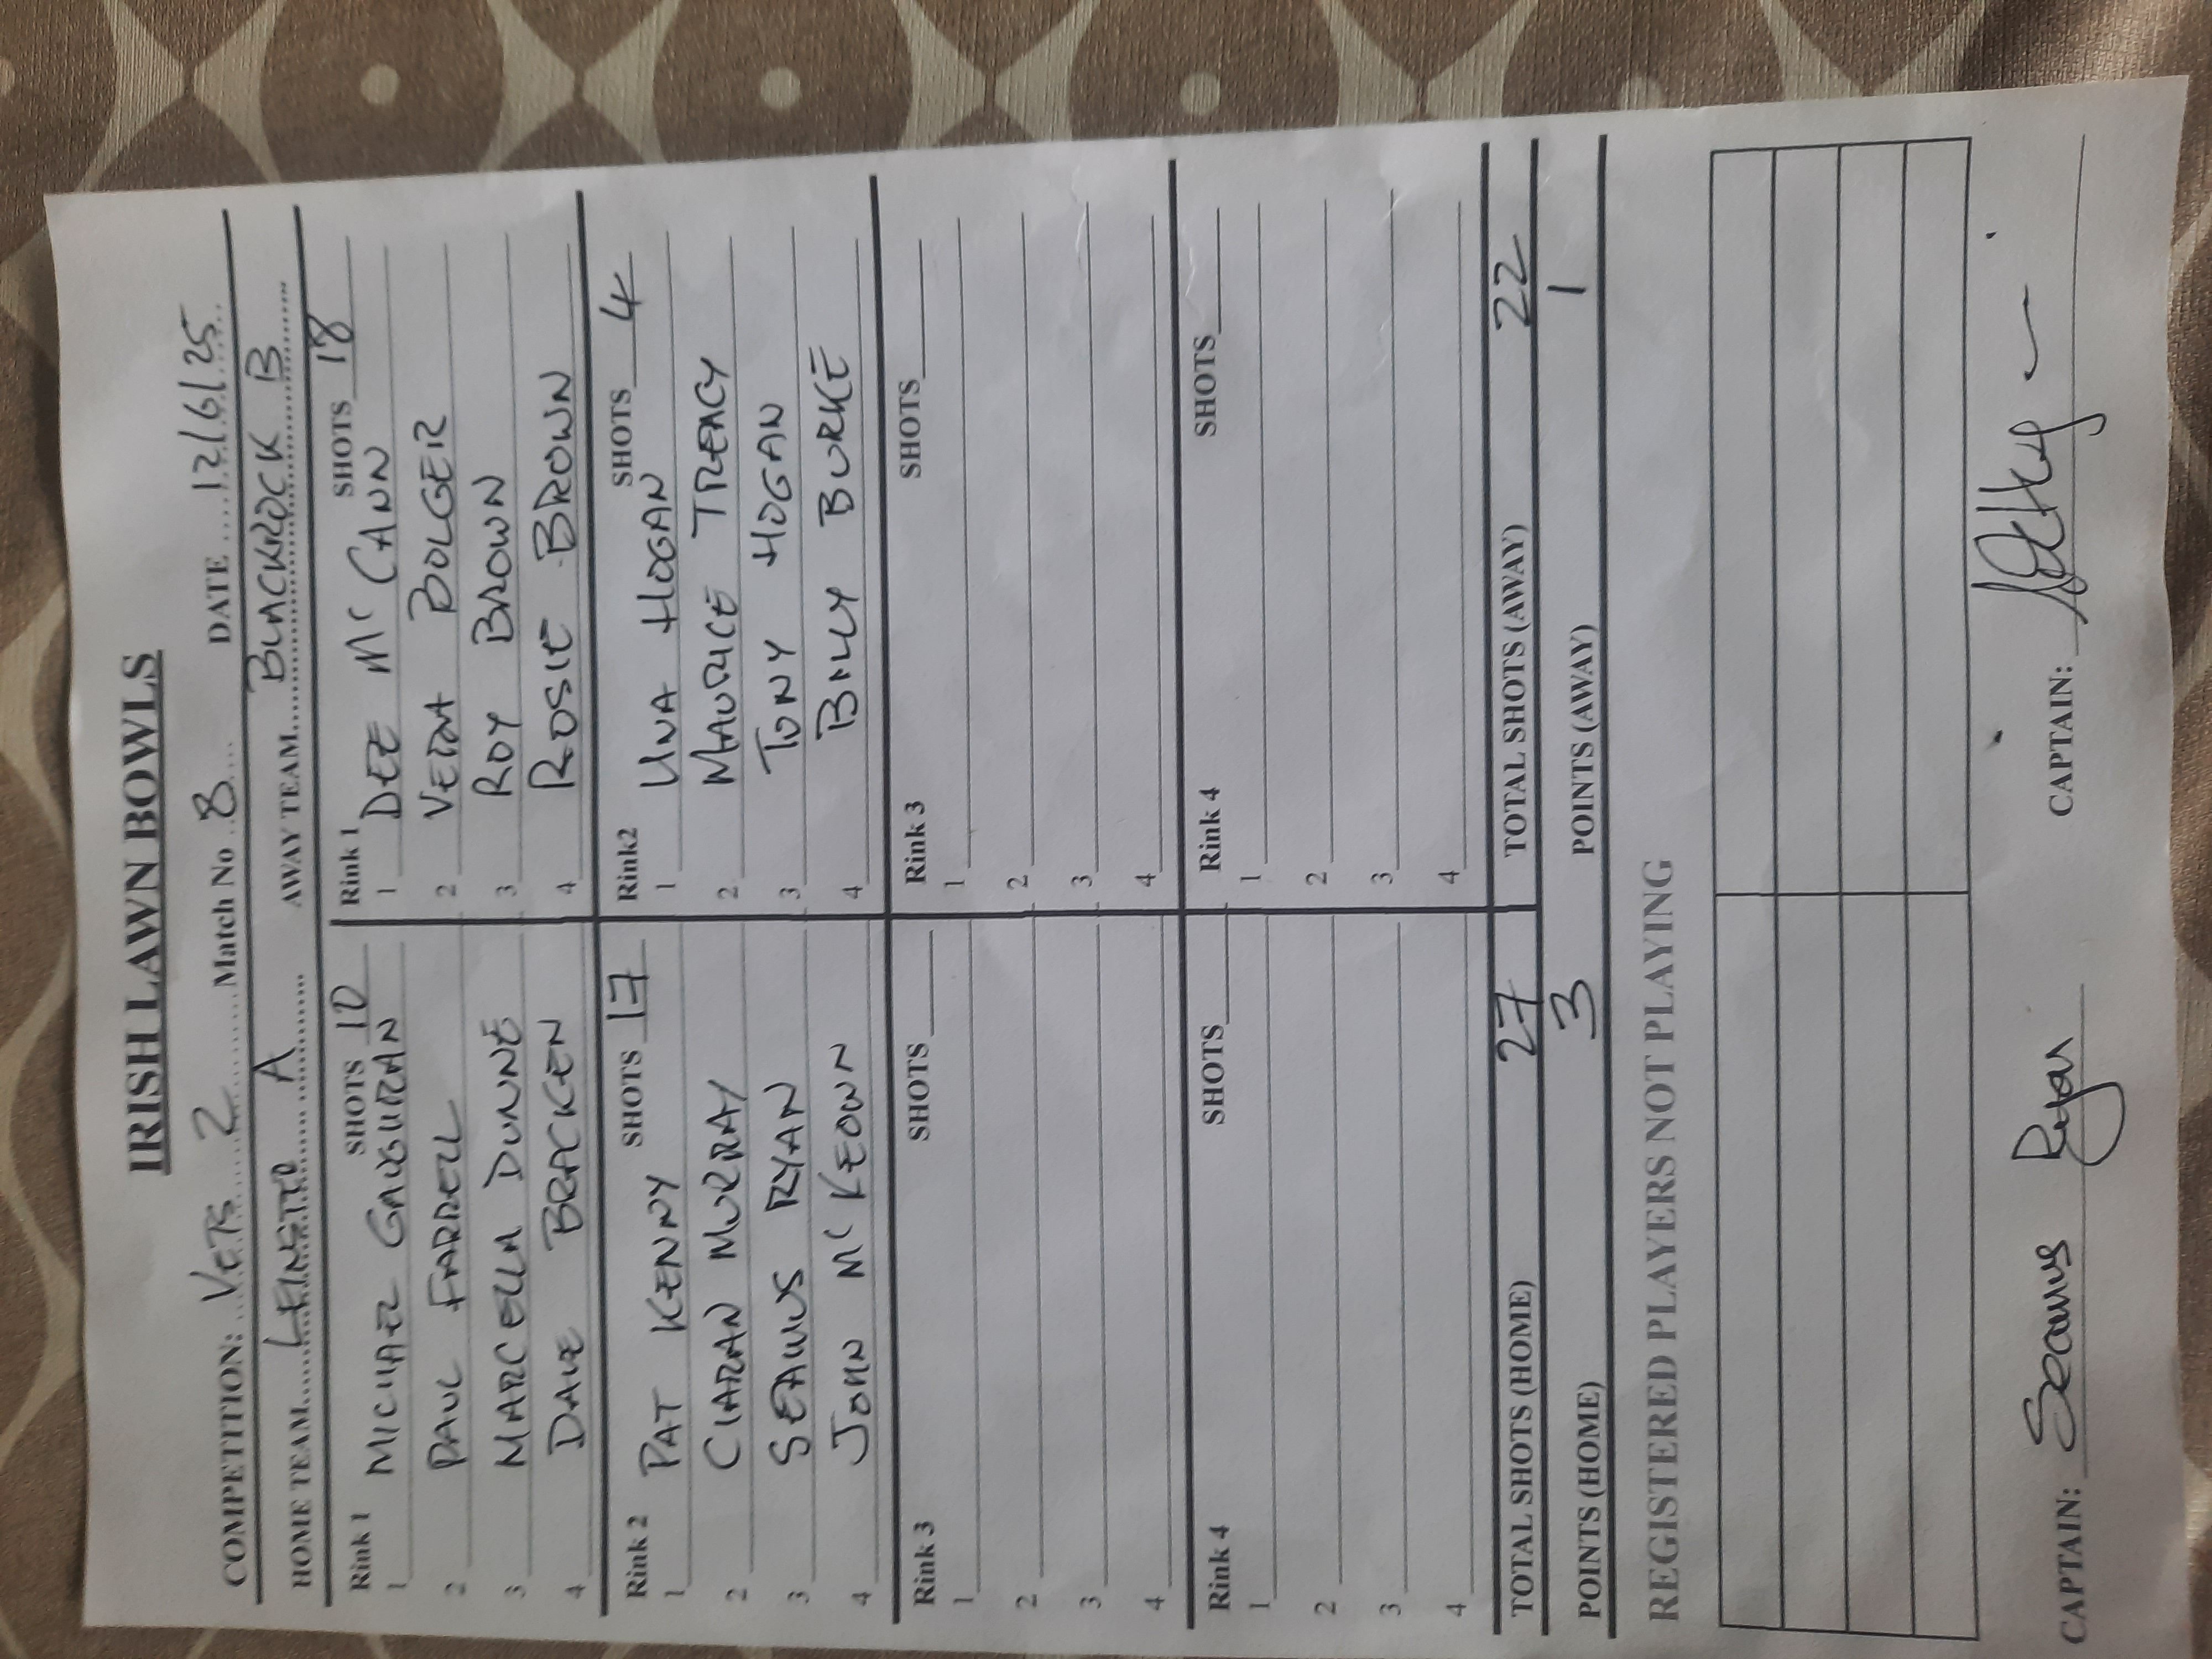 IRISH LAWN BOWLS
COMPETITION: VETS 2 Match No 8 DATE 12/6/25
HOME TEAM LEINSTR A AWAY TEAM BLACKROCK B
Rink 1 SHOTS 10 Rink 1 SHOTS 18
1 MICHAEL GAUGHRAN 1 DEE Mc CANN
2 PAUL FARRELL 2 VERA BOLGER
3 MARCELLA DUNNE 3 ROY BROWN
4 DAVE BRACKEN 4 ROSIE BROWN
Rink 2 SHOTS 17 Rink2 SHOTS 4
1 PAT KENNY 1 UNA HOGAN
2 CIARAN MURRAY 2 MAURICE TREACY
3 SEAMUS RYAN 3 TONY HOGAN
4 JOHN Mc KEOWN 4 BILLY BURKE
Rink 3 SHOTS Rink 3 SHOTS
1 1
2 2
3 3
4 4
Rink 4 SHOTS Rink 4 SHOTS
1 1
2 2
3 3
4 4
TOTAL SHOTS (HOME) 27 TOTAL SHOTS (AWAY) 22
POINTS (HOME) 3 POINTS (AWAY) 1
REGISTERED PLAYERS NOT PLAYING
CAPTAIN: Seamus Ryan CAPTAIN: